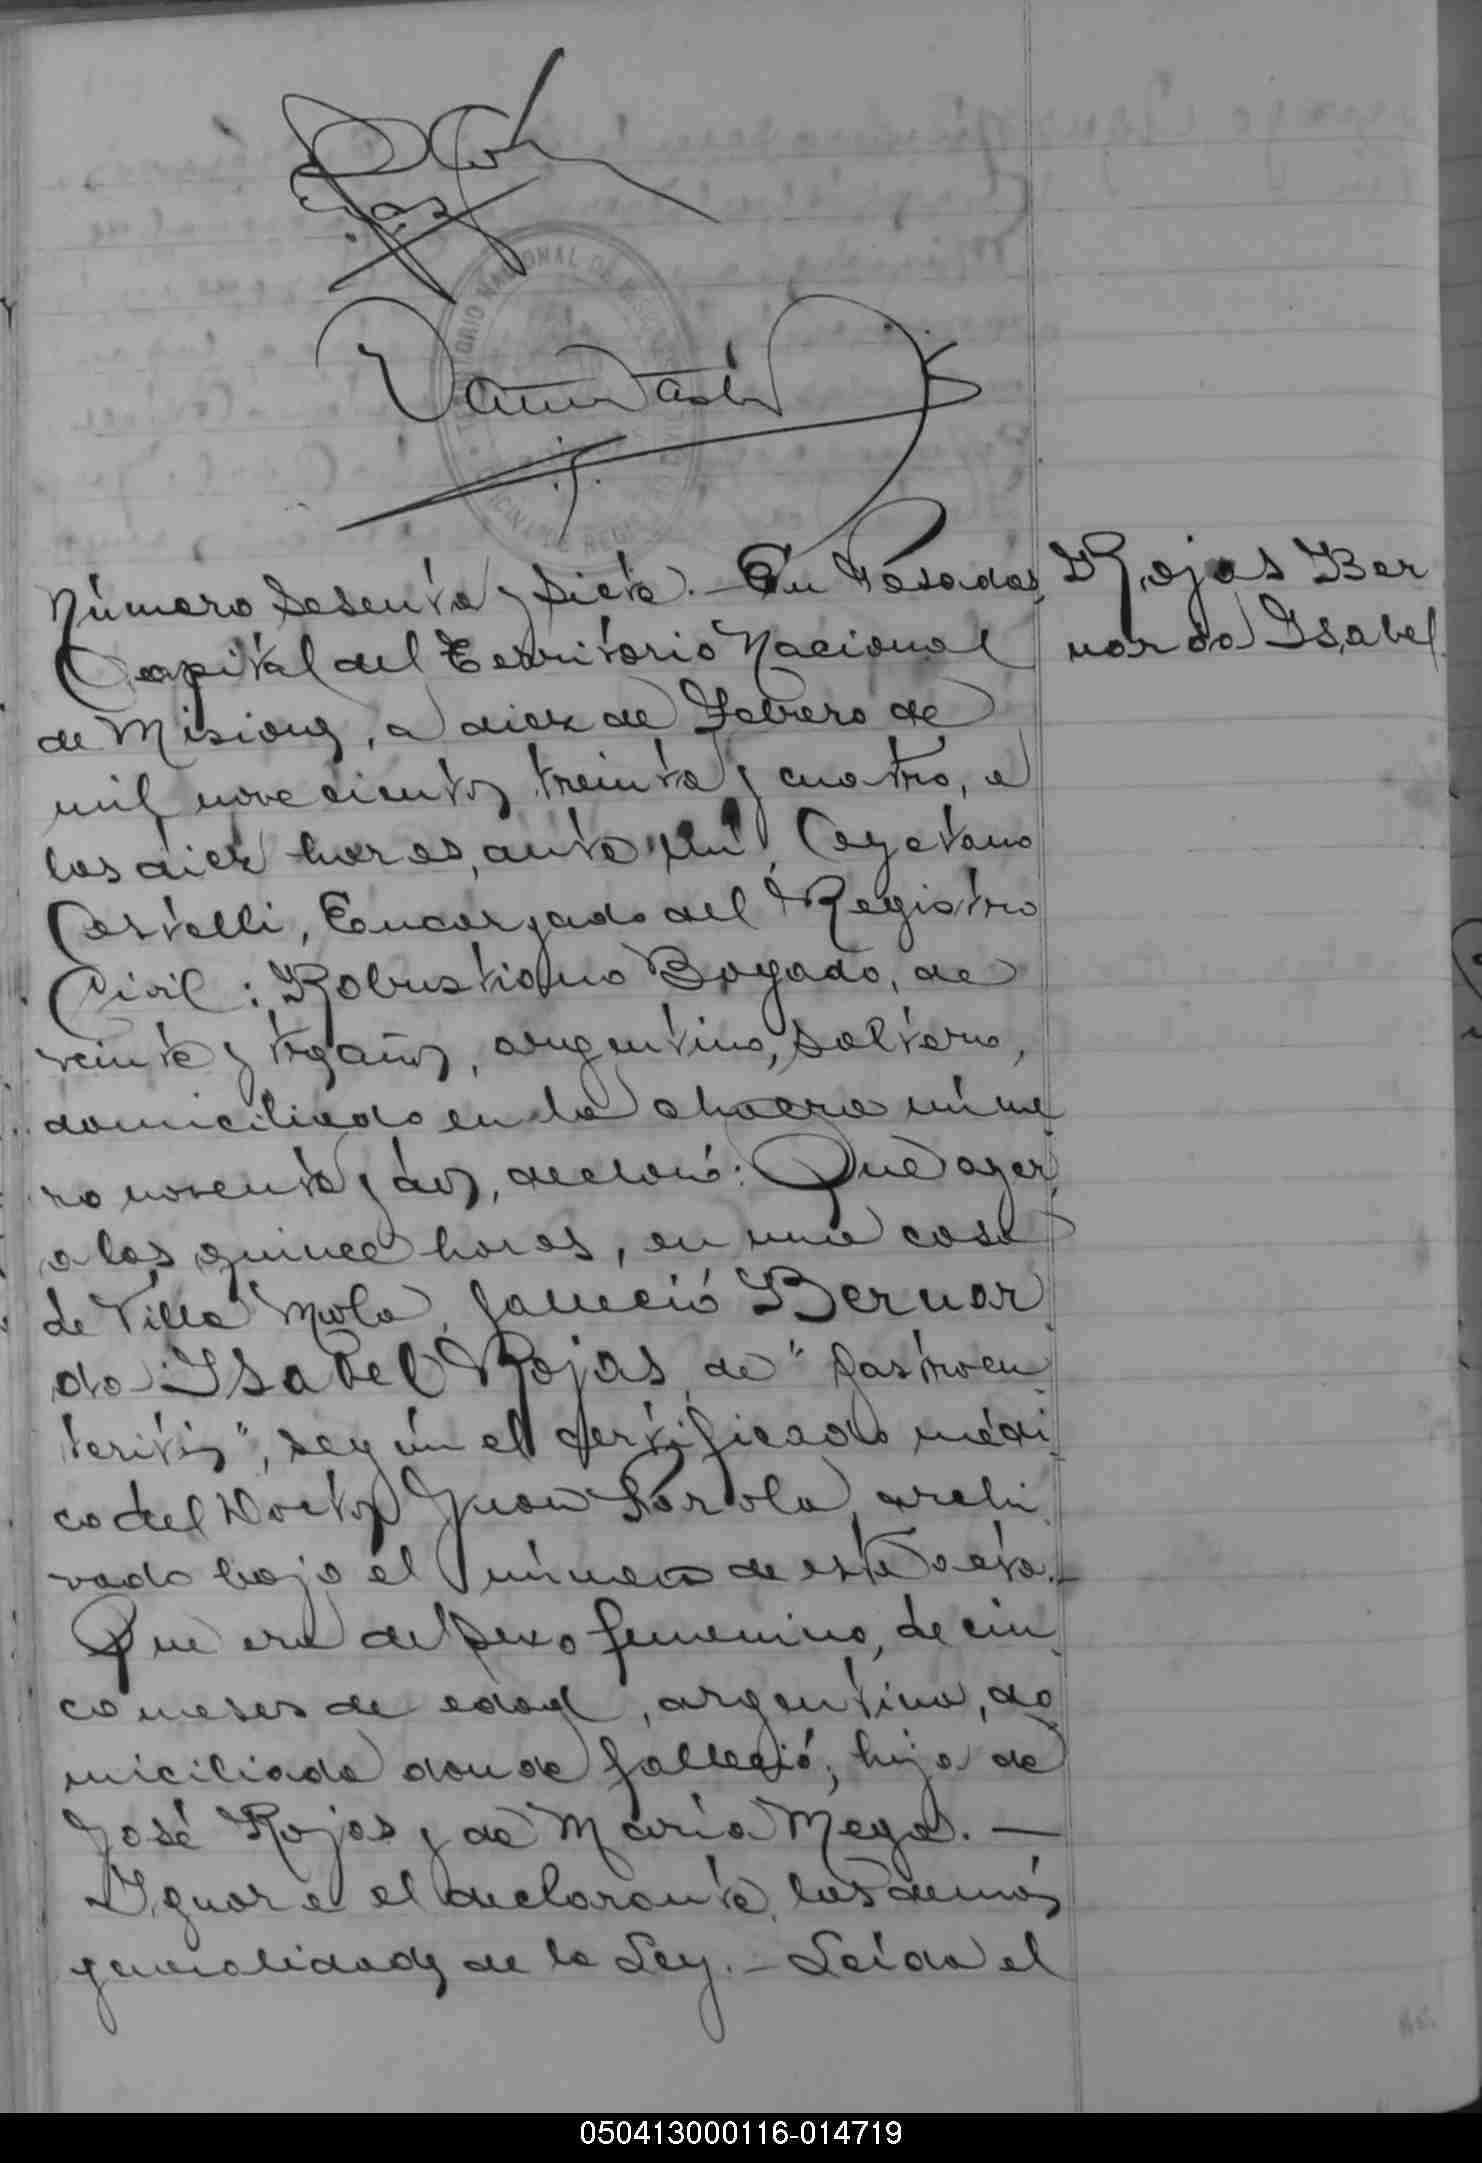 Número Sesenta y Siete.- En Posadas,
Capital del Territorio Nacional
de Misiones, a diez de Febrero de
mil novecientos treinta y cuatro, a
las diez horas, ante mí, Cayetano
Castelli, Encargado del Registro
Civil: Robustiano Bogado, de
veinte y tres años, argentino, soltero,
domiciliado en la chacra núme
ro noventa y dos, declaró: Que ayer
a las quince horas, en una casa
de Villa Mola, falleció Bernar
da Isabel Rojas, de "gastroen
teritis", según el certificado médi
co del Doctor Juan Parola, archi
vado bajo el número de esta acta.-
Que era del sexo femenino, de cin
co meses de edad, argentina, do
miciliada donde falleció; hija de
José Rojas y de María Meza. —
Ignora el declarante las demás
generalidades de la Ley.- Leída el
Rojas Ber
narda Isabel
050413000116-014719